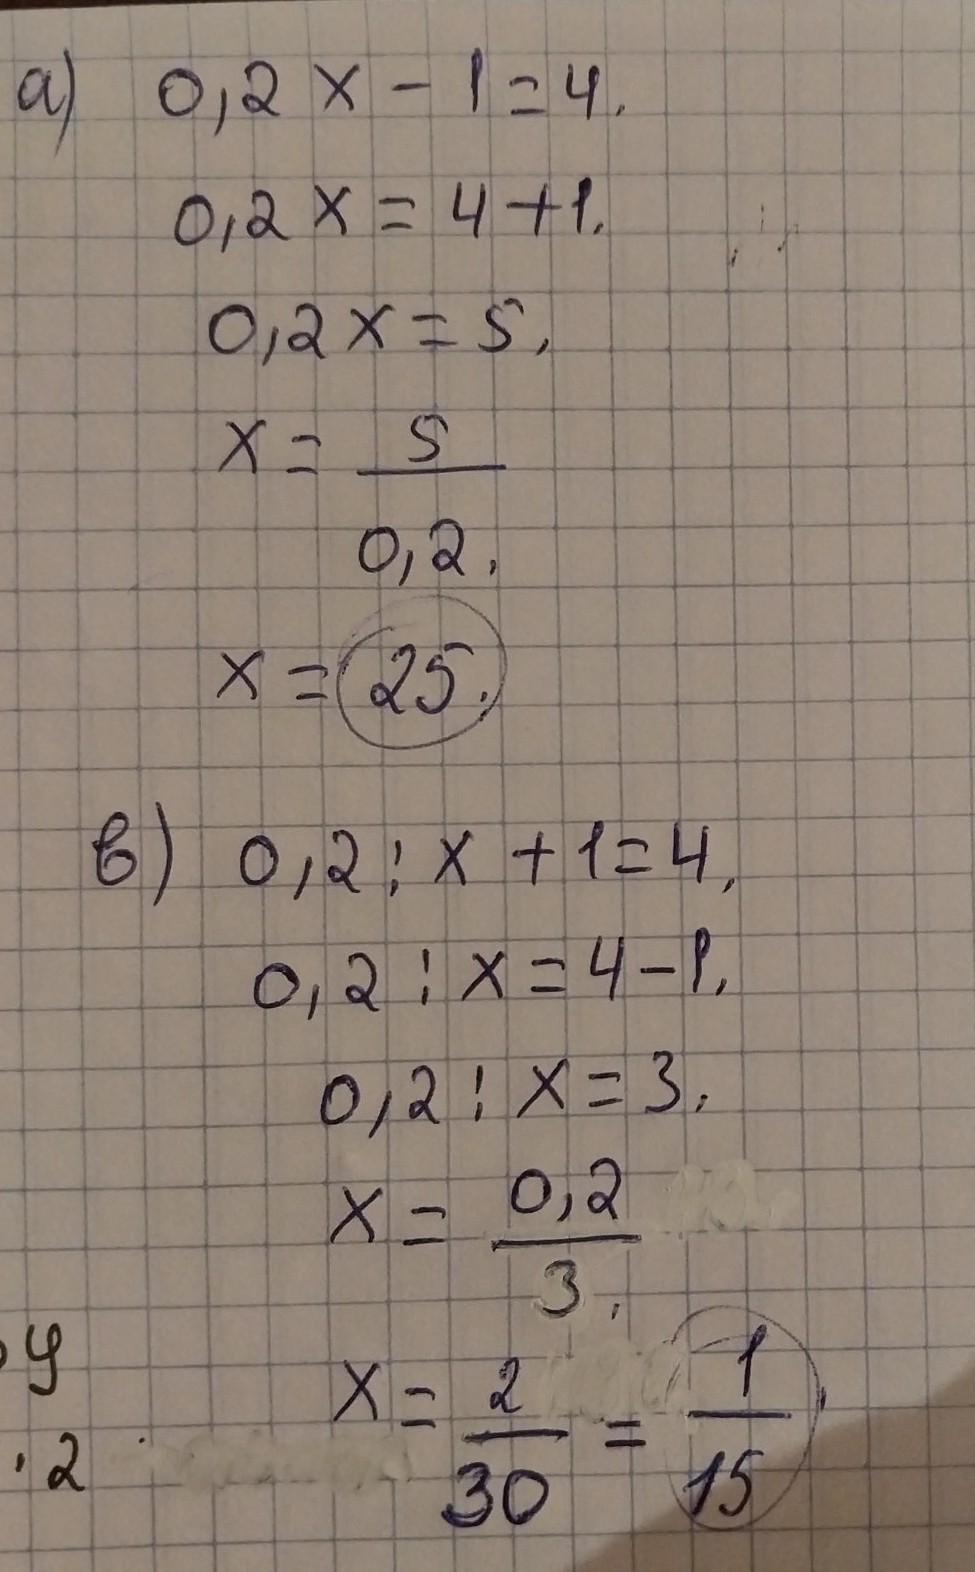 а) 0,2 x - 1 = 4.
0,2 x = 4 + 1.
0,2 x = 5.
x = 5 / 0,2.
x = 25.
в) 0,2 : x + 1 = 4.
0,2 : x = 4 - 1.
0,2 : x = 3.
x = 0,2 / 3.
x = 2 / 30 = 1 / 15
у
· 2